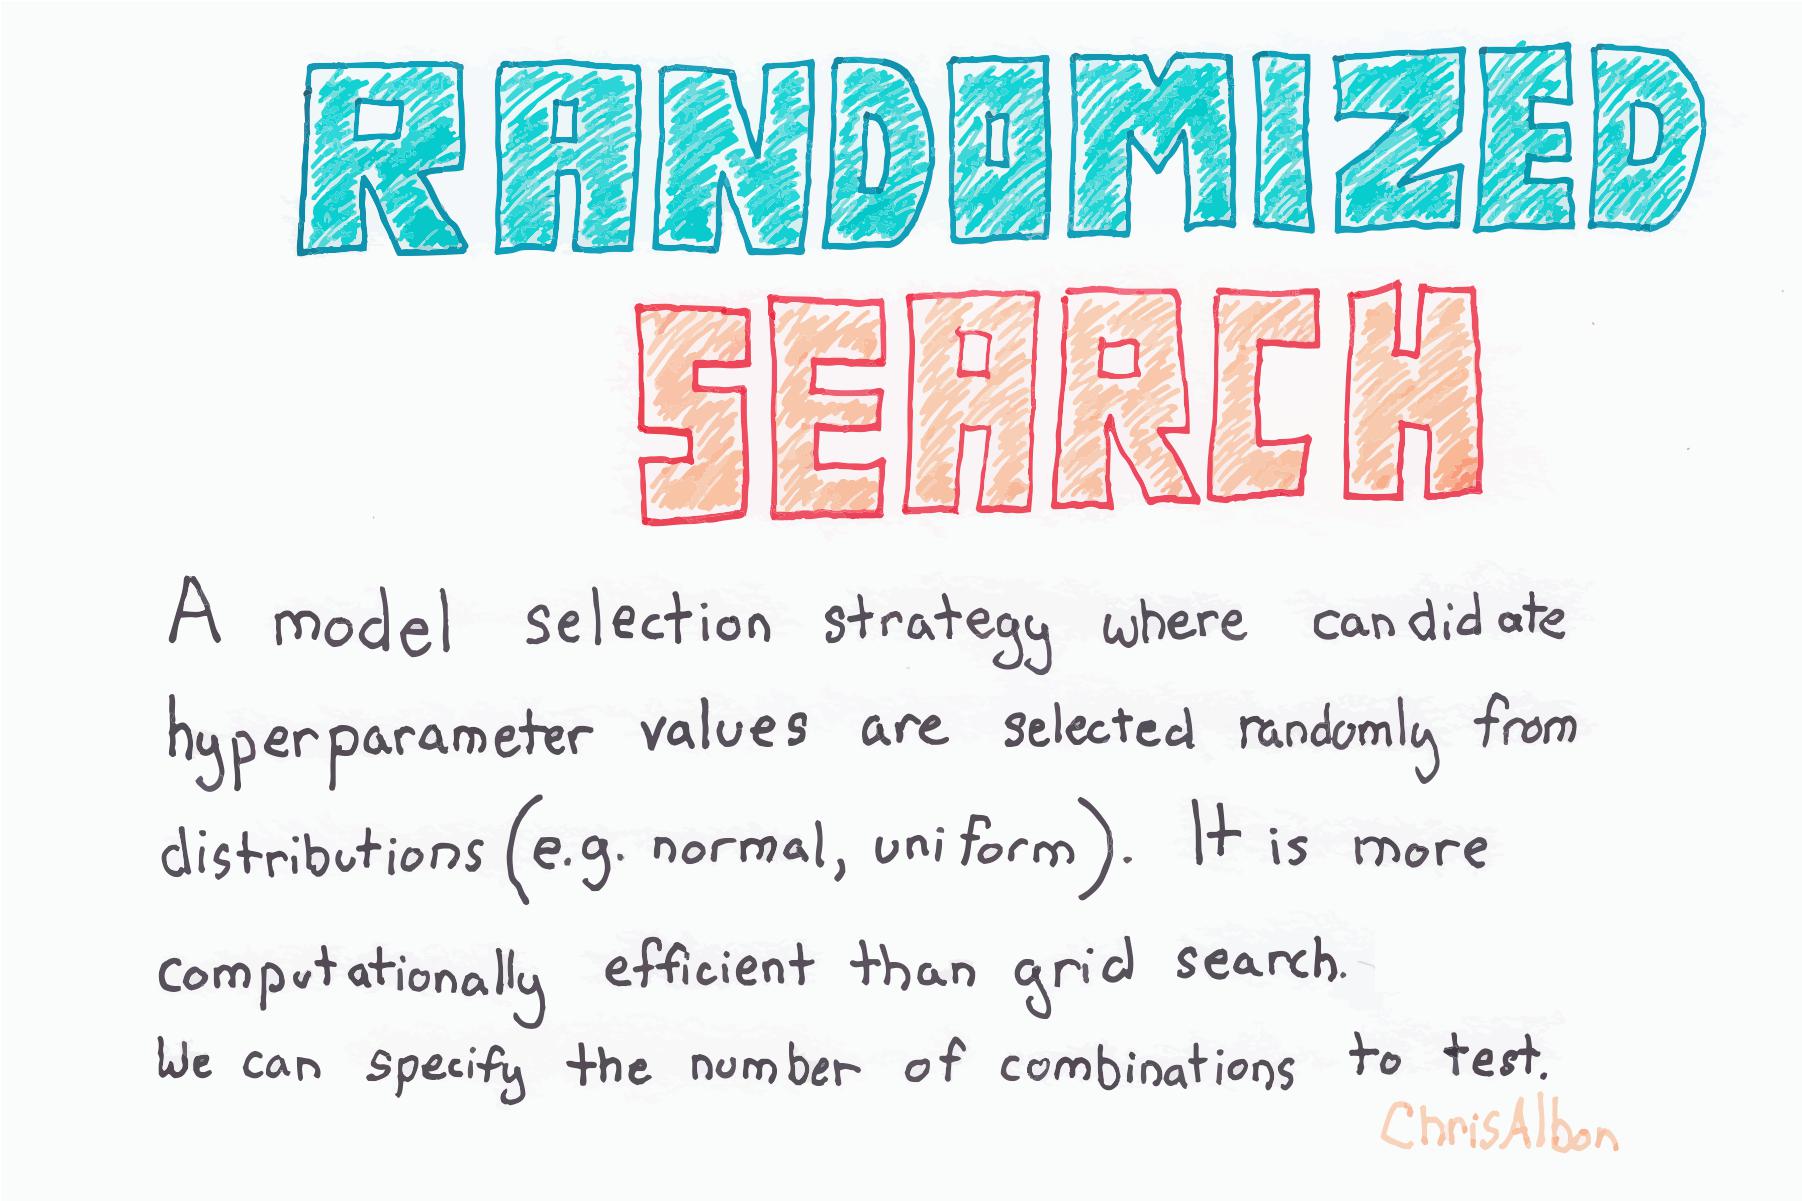 RANDOMIZED
SEARCH
A model selection strategy where candidate
hyperparameter values are selected randomly from
distributions (e.g. normal, uniform). It is more
computationally efficient than grid search.
We can specify the number of combinations to test.
ChrisAlbon